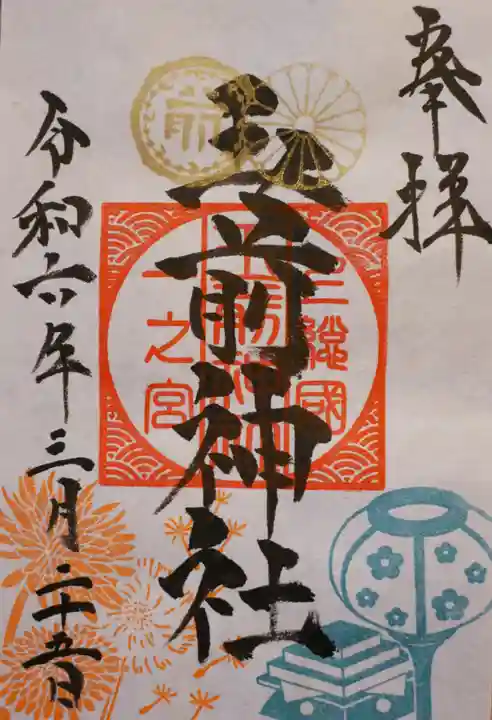 奉拝
玉前神社
上総國
玉前神社
一之宮
前
令和六年三月二十五日